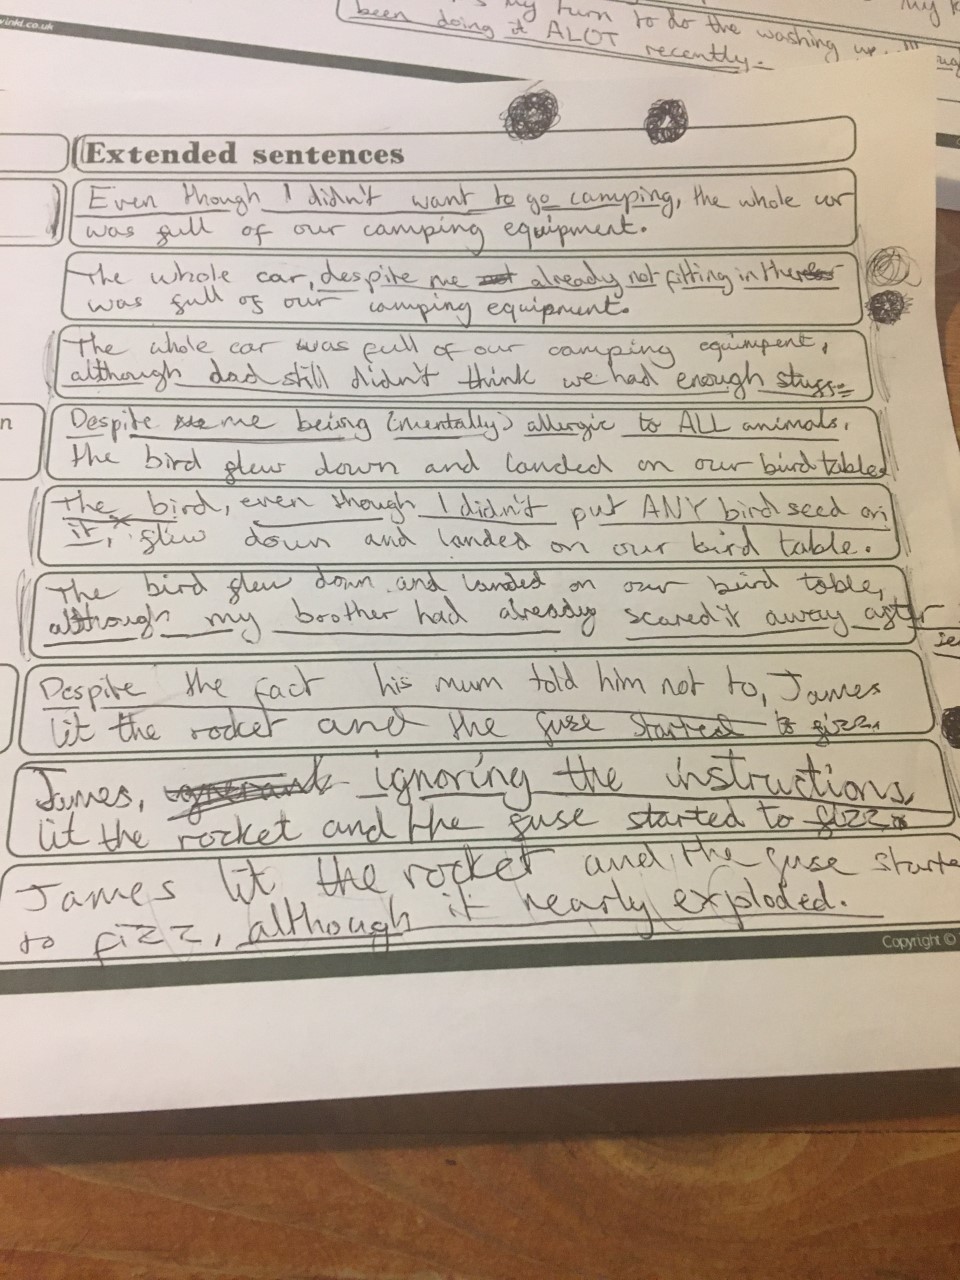 my turn to do the washing up...!!! 
been doing it ALOT recently.
my
Extended sentences
Even though I didn't want to go camping, the whole car
was full of our camping equipment.
The whole car, despite me already not fitting in there
was full of our camping equipment.
The whole car was full of our camping equimpent,
although dad still didn't think we had enough stuff.
n
Despite me being (mentally) allergic to ALL animals,
the bird flew down and landed on our bird table.
The bird, even though I didn't put ANY bird seed on
it, flew down and landed on our bird table.
The bird flew down and landed on our bird table,
although my brother had already scared it away after
Despite the fact his mum told him not to, James
lit the rocket and the fuse started to fizz.
James, ignoring the instructions,
lit the rocket and the fuse started to fizz.
James lit the rocket and the fuse starte
to fizz, although it nearly exploded.
Copyright ©